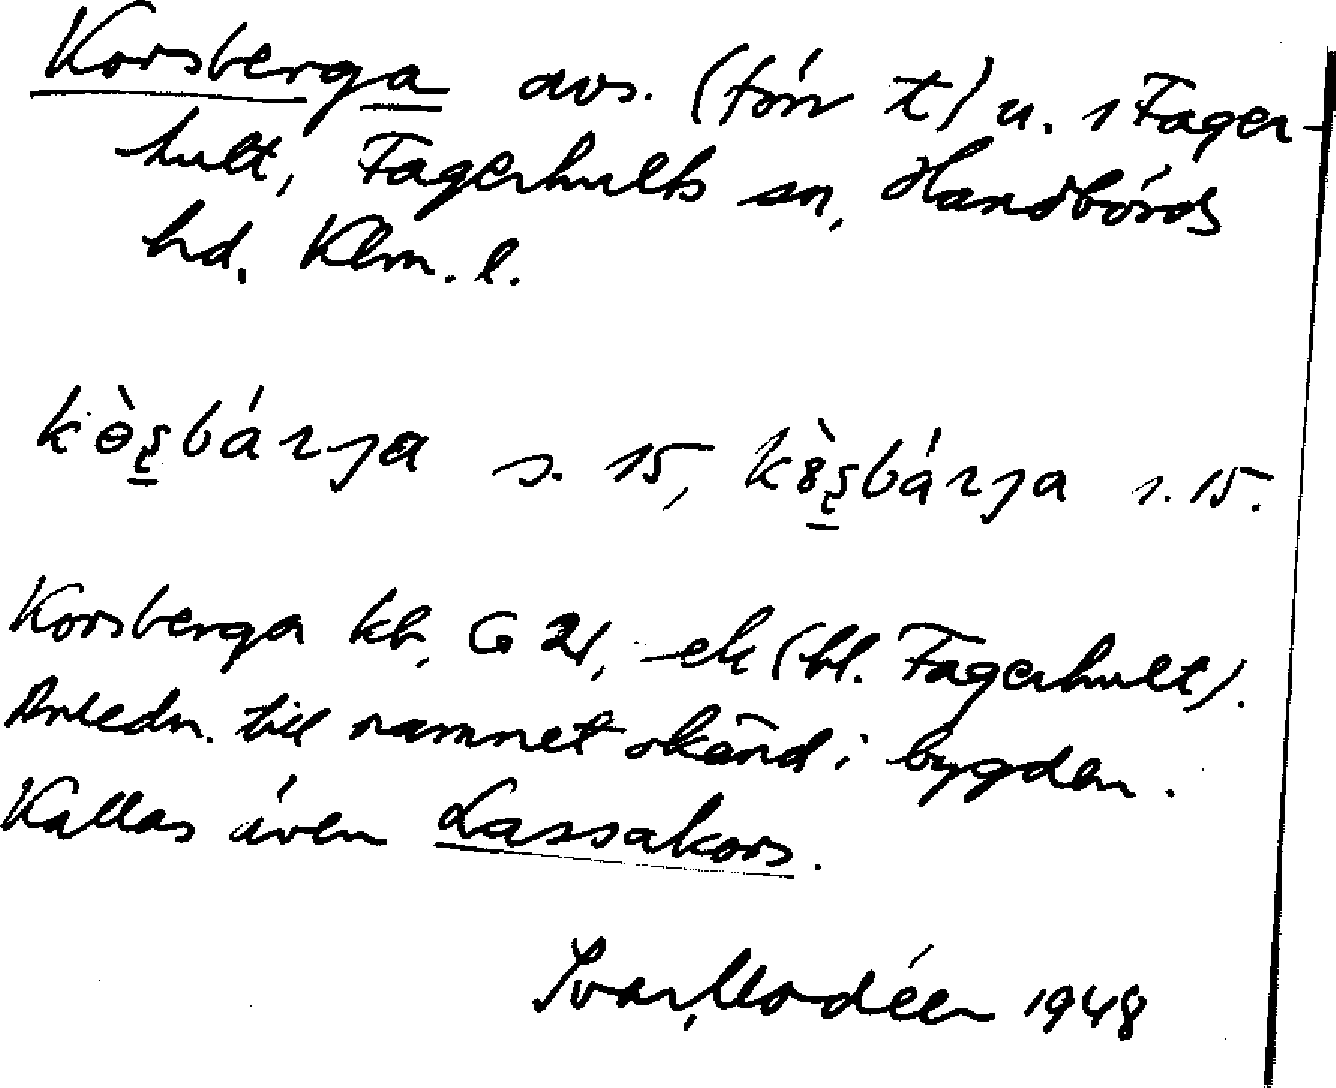 Korsberga avs. (förr t) u. 1 Fager-
hult, Fagerhults sn, Handbörds
hd, Klm. l.
kɵ̀ʂbárɟa s. 15, k8̀ʂbárɟa s. 15.
Korsberga kb, G 21, ek (bl. Fagerhult).
Anledn. till namnet okänd i bygden.
Kallas även Lassakors.
Ivar Modéer 1948